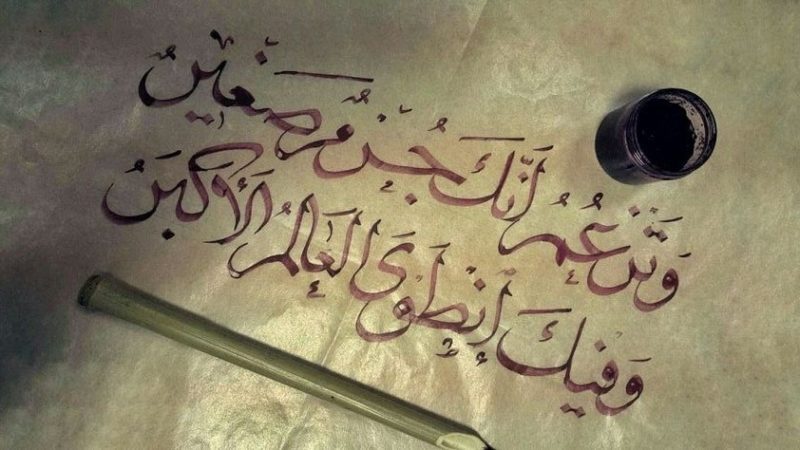 وَتَزْعُمُ أَنَّكَ جُزْءٌ صَغِيرٌ
وَفِيكَ إِنْطَوَى العَالَمُ الأَكْبَرُ